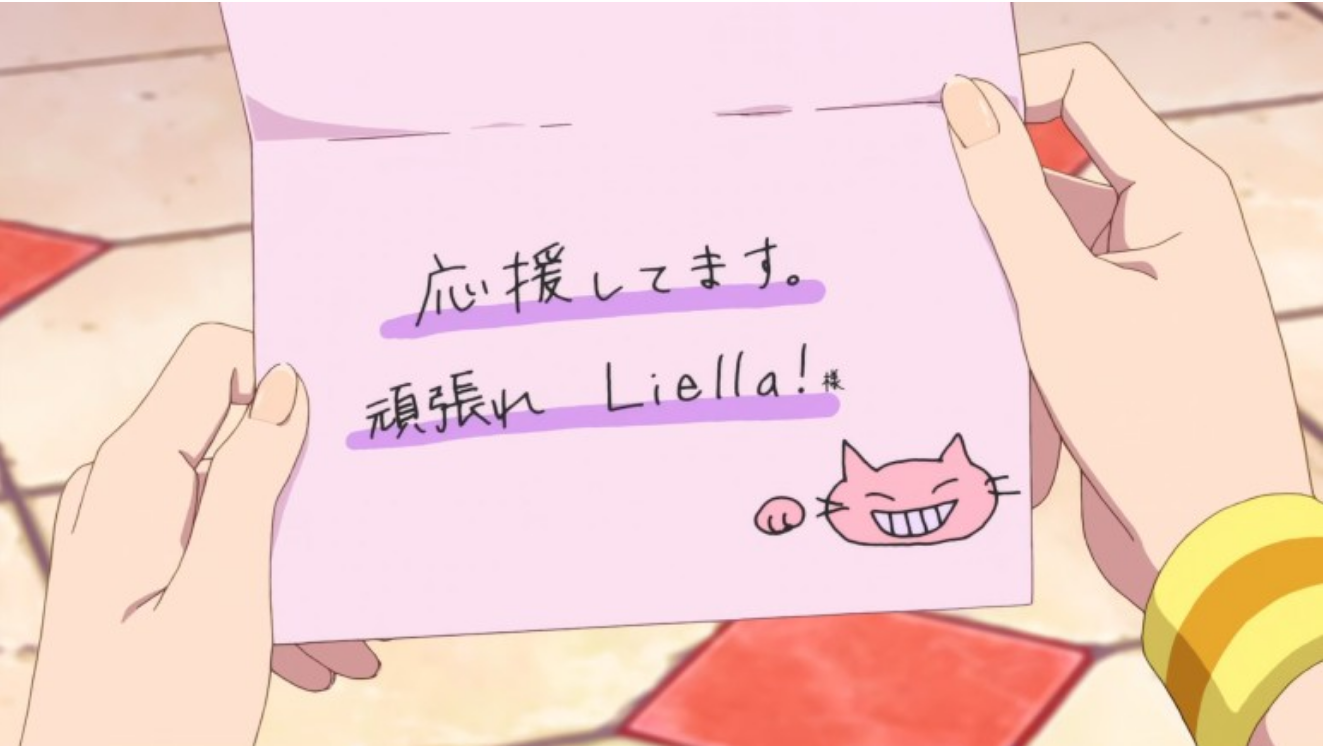 応援してます。
頑張れ Liella!様